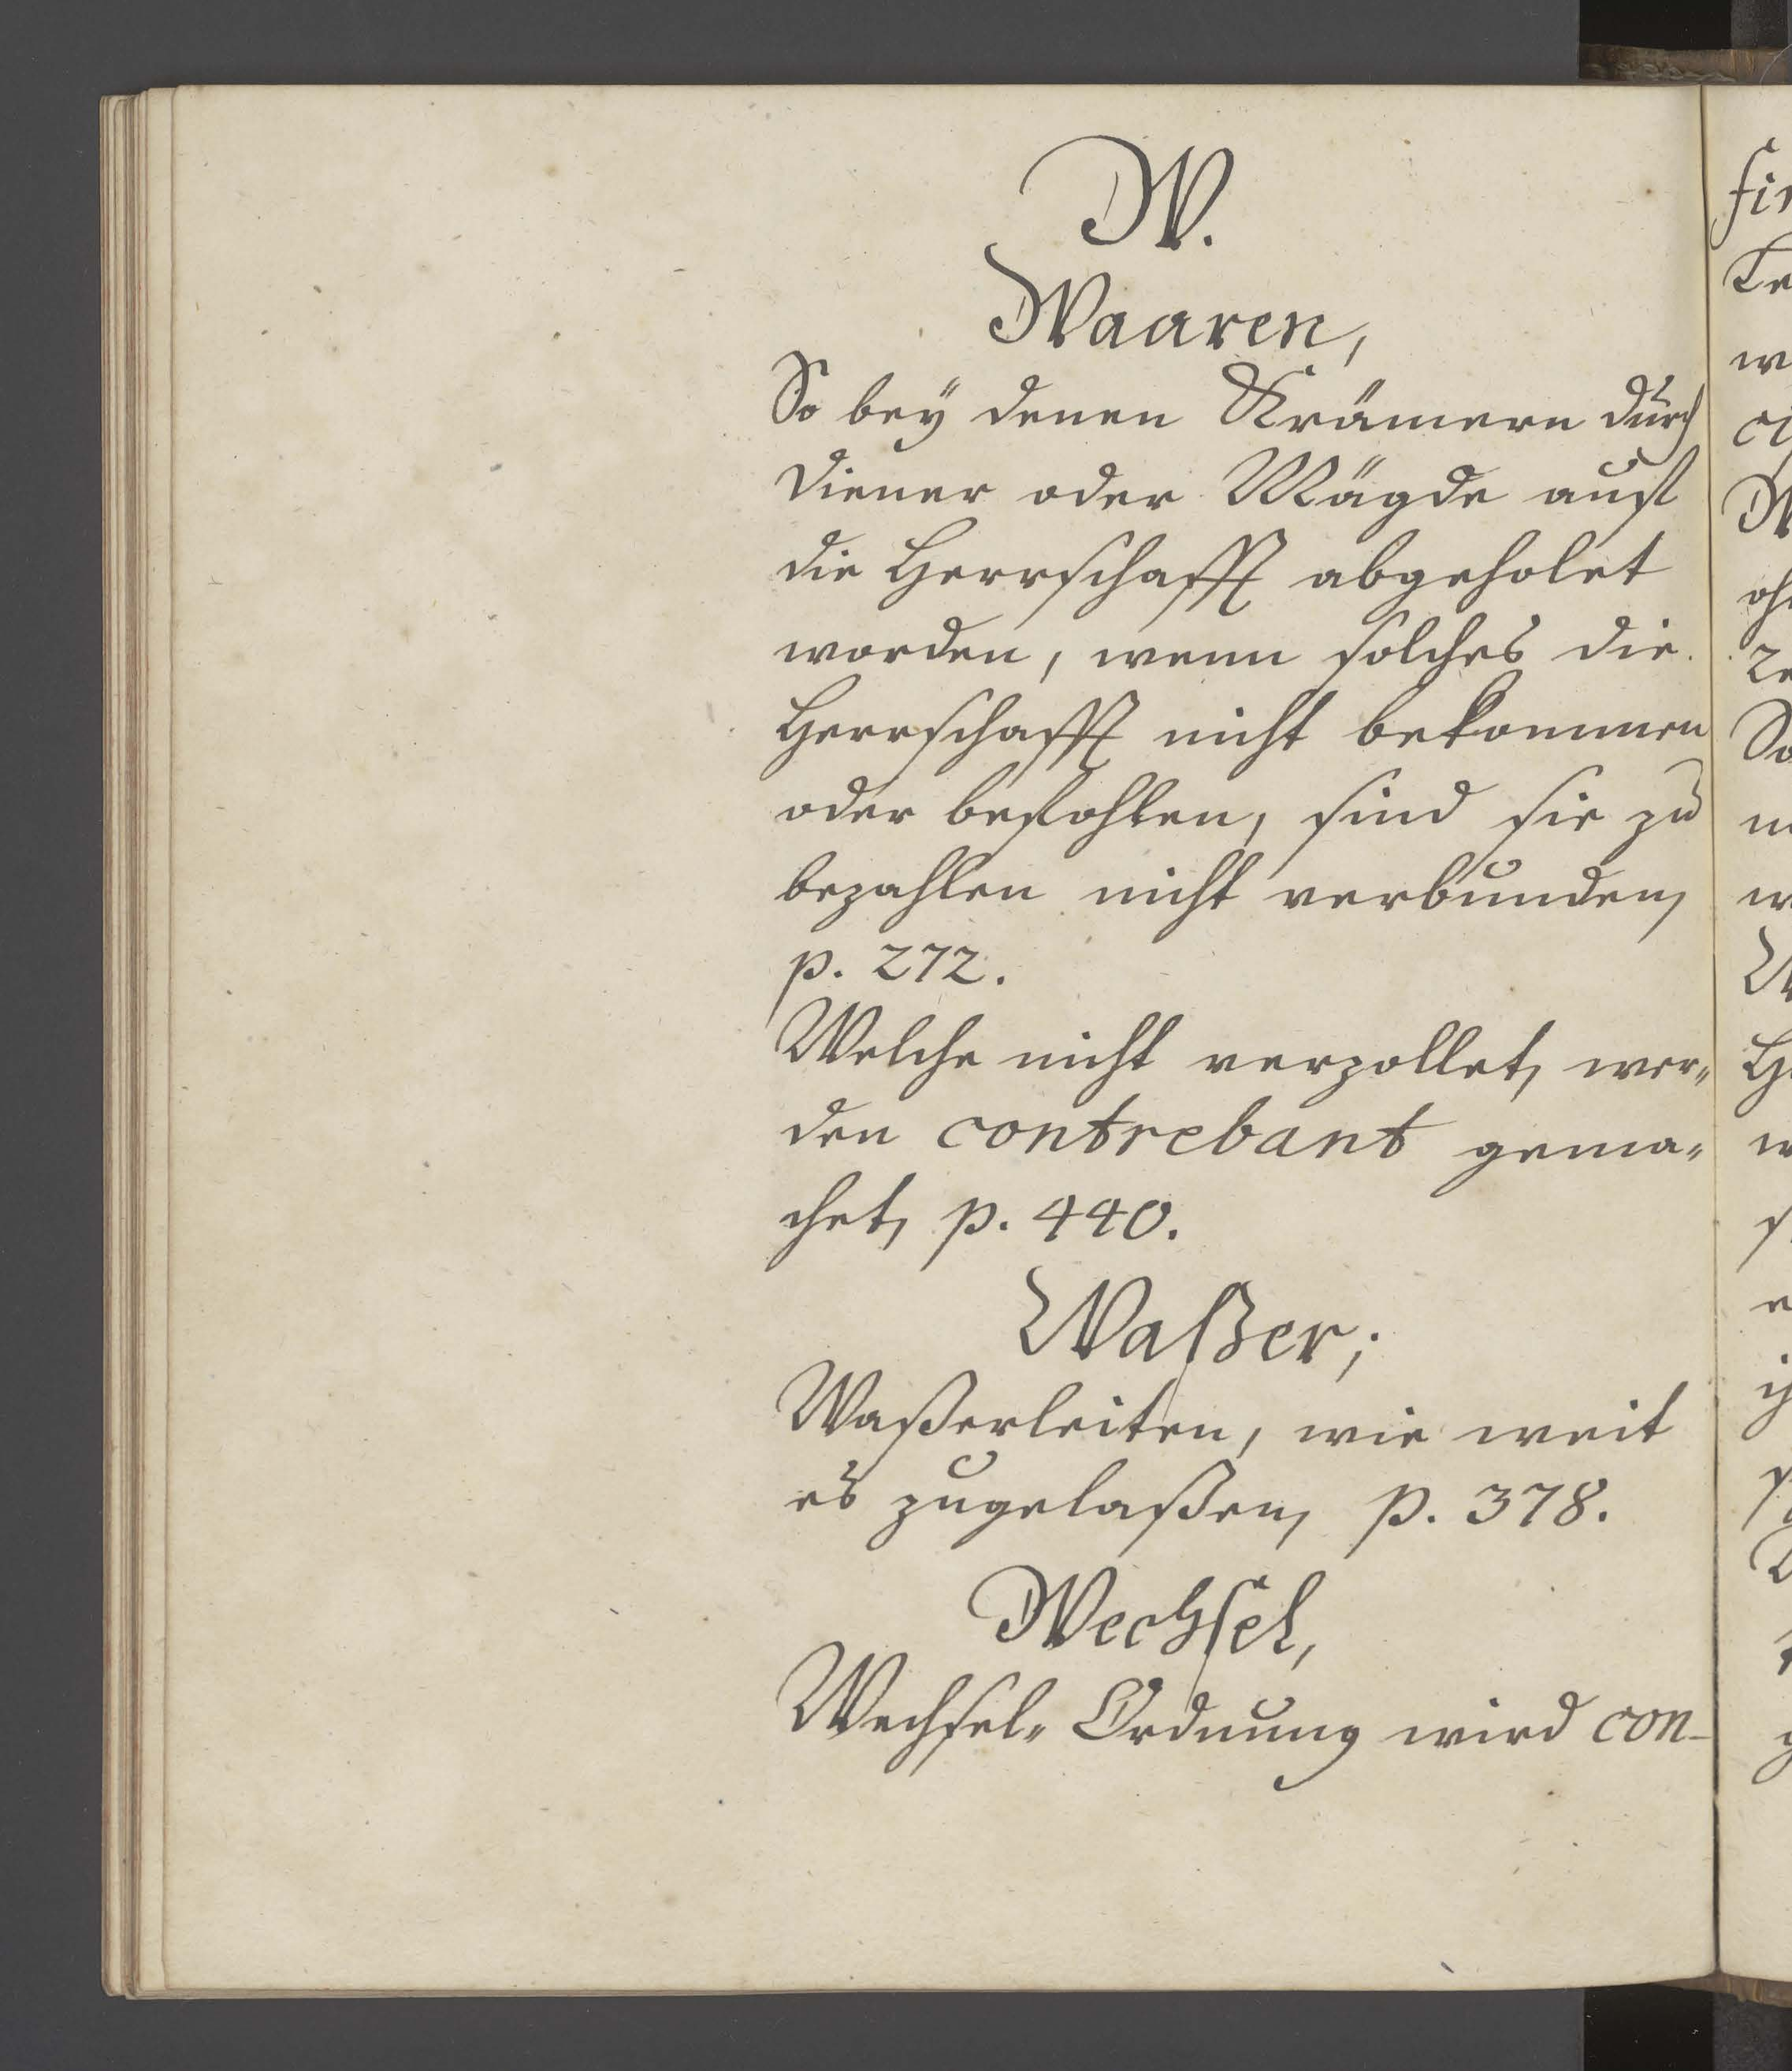 W.
Waaren,
So bey denen Krämern durch
Diener oder Mägde auf
die Herrschafft abgeholet
worden, wenn solches die
Herrschafft nicht bekommen
oder befohlen, sind sie zu
bezahlen nicht verbunden,
p. 272.
Welche nicht verzollet, wer„
den contrebant gema„
chet, p. 440.
Waßer;
Waßerleiten, wie weit
es zugelaßen, p. 378.
Wechsel,
Wechsel„ Ordnung wird con-